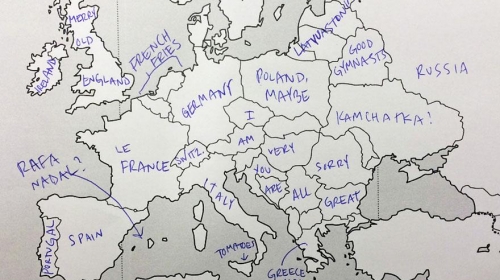 MERRY
OLD
ENGLAND
IRELAND
FRENCH
FRIES
GERMANY
POLAND,
MAYBE
GOOD
GYMNASTS
RUSSIA
KAMCHATKA?
I
AM
VERY
SORRY
YOU
ARE
ALL
GREAT
LE
FRANCE
SWITZ.
ITALY
RAFA
NADAL?
PORTUGAL
SPAIN
TOMATOES
GREECE